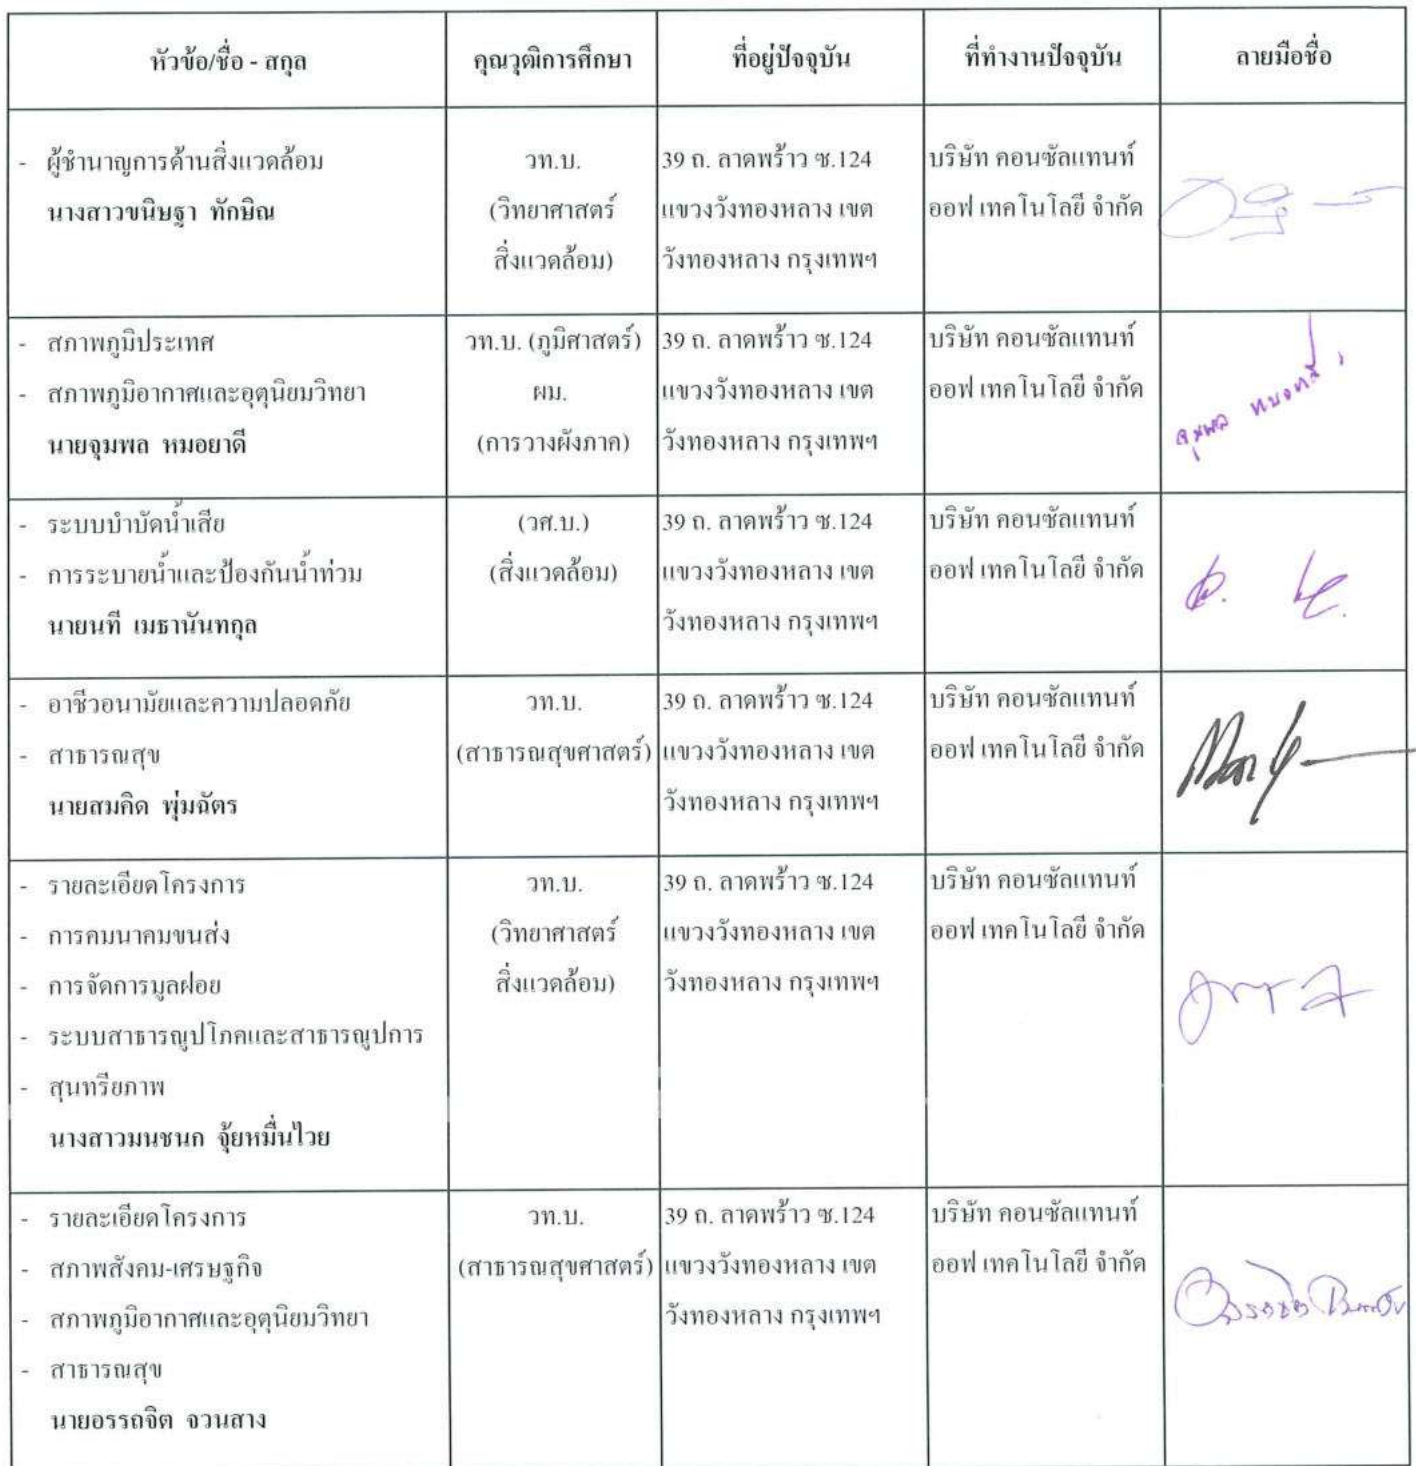 หัวข้อ/ชื่อ - สกุล
คุณวุฒิการศึกษา
ที่อยู่ปัจจุบัน
ที่ทำงานปัจจุบัน
ลายมือชื่อ
- ผู้ชำนาญการด้านสิ่งแวดล้อม
นางสาวขนิษฐา ทักษิณ
วท.บ.
(วิทยาศาสตร์
สิ่งแวดล้อม)
39 ถ. ลาดพร้าว ซ.124
แขวงวังทองหลาง เขต
วังทองหลาง กรุงเทพฯ
บริษัท คอนซัลแทนท์
ออฟ เทคโนโลยี จำกัด
- สภาพภูมิประเทศ
- สภาพภูมิอากาศและอุตุนิยมวิทยา
นายจุมพล หมอยาดี
วท.บ. (ภูมิศาสตร์)
ผม.
(การวางผังภาค)
39 ถ. ลาดพร้าว ซ.124
แขวงวังทองหลาง เขต
วังทองหลาง กรุงเทพฯ
บริษัท คอนซัลแทนท์
ออฟ เทคโนโลยี จำกัด
จุมพล
- ระบบบำบัดน้ำเสีย
- การระบายน้ำและป้องกันน้ำท่วม
นายนที เมธานันทกุล
(วศ.บ.)
(สิ่งแวดล้อม)
39 ถ. ลาดพร้าว ซ.124
แขวงวังทองหลาง เขต
วังทองหลาง กรุงเทพฯ
บริษัท คอนซัลแทนท์
ออฟ เทคโนโลยี จำกัด
- อาชีวอนามัยและความปลอดภัย
- สาธารณสุข
นายสมคิด พุ่มฉัตร
วท.บ.
(สาธารณสุขศาสตร์)
39 ถ. ลาดพร้าว ซ.124
แขวงวังทองหลาง เขต
วังทองหลาง กรุงเทพฯ
บริษัท คอนซัลแทนท์
ออฟ เทคโนโลยี จำกัด
- รายละเอียดโครงการ
- การคมนาคมขนส่ง
- การจัดการมูลฝอย
- ระบบสาธารณูปโภคและสาธารณูปการ
- สุนทรียภาพ
นางสาวมนชนก จุ้ยหมื่นไวย
วท.บ.
(วิทยาศาสตร์
สิ่งแวดล้อม)
39 ถ. ลาดพร้าว ซ.124
แขวงวังทองหลาง เขต
วังทองหลาง กรุงเทพฯ
บริษัท คอนซัลแทนท์
ออฟ เทคโนโลยี จำกัด
- รายละเอียดโครงการ
- สภาพสังคม-เศรษฐกิจ
- สภาพภูมิอากาศและอุตุนิยมวิทยา
- สาธารณสุข
นายอรรถจิต จวนสาง
วท.บ.
(สาธารณสุขศาสตร์)
39 ถ. ลาดพร้าว ซ.124
แขวงวังทองหลาง เขต
วังทองหลาง กรุงเทพฯ
บริษัท คอนซัลแทนท์
ออฟ เทคโนโลยี จำกัด